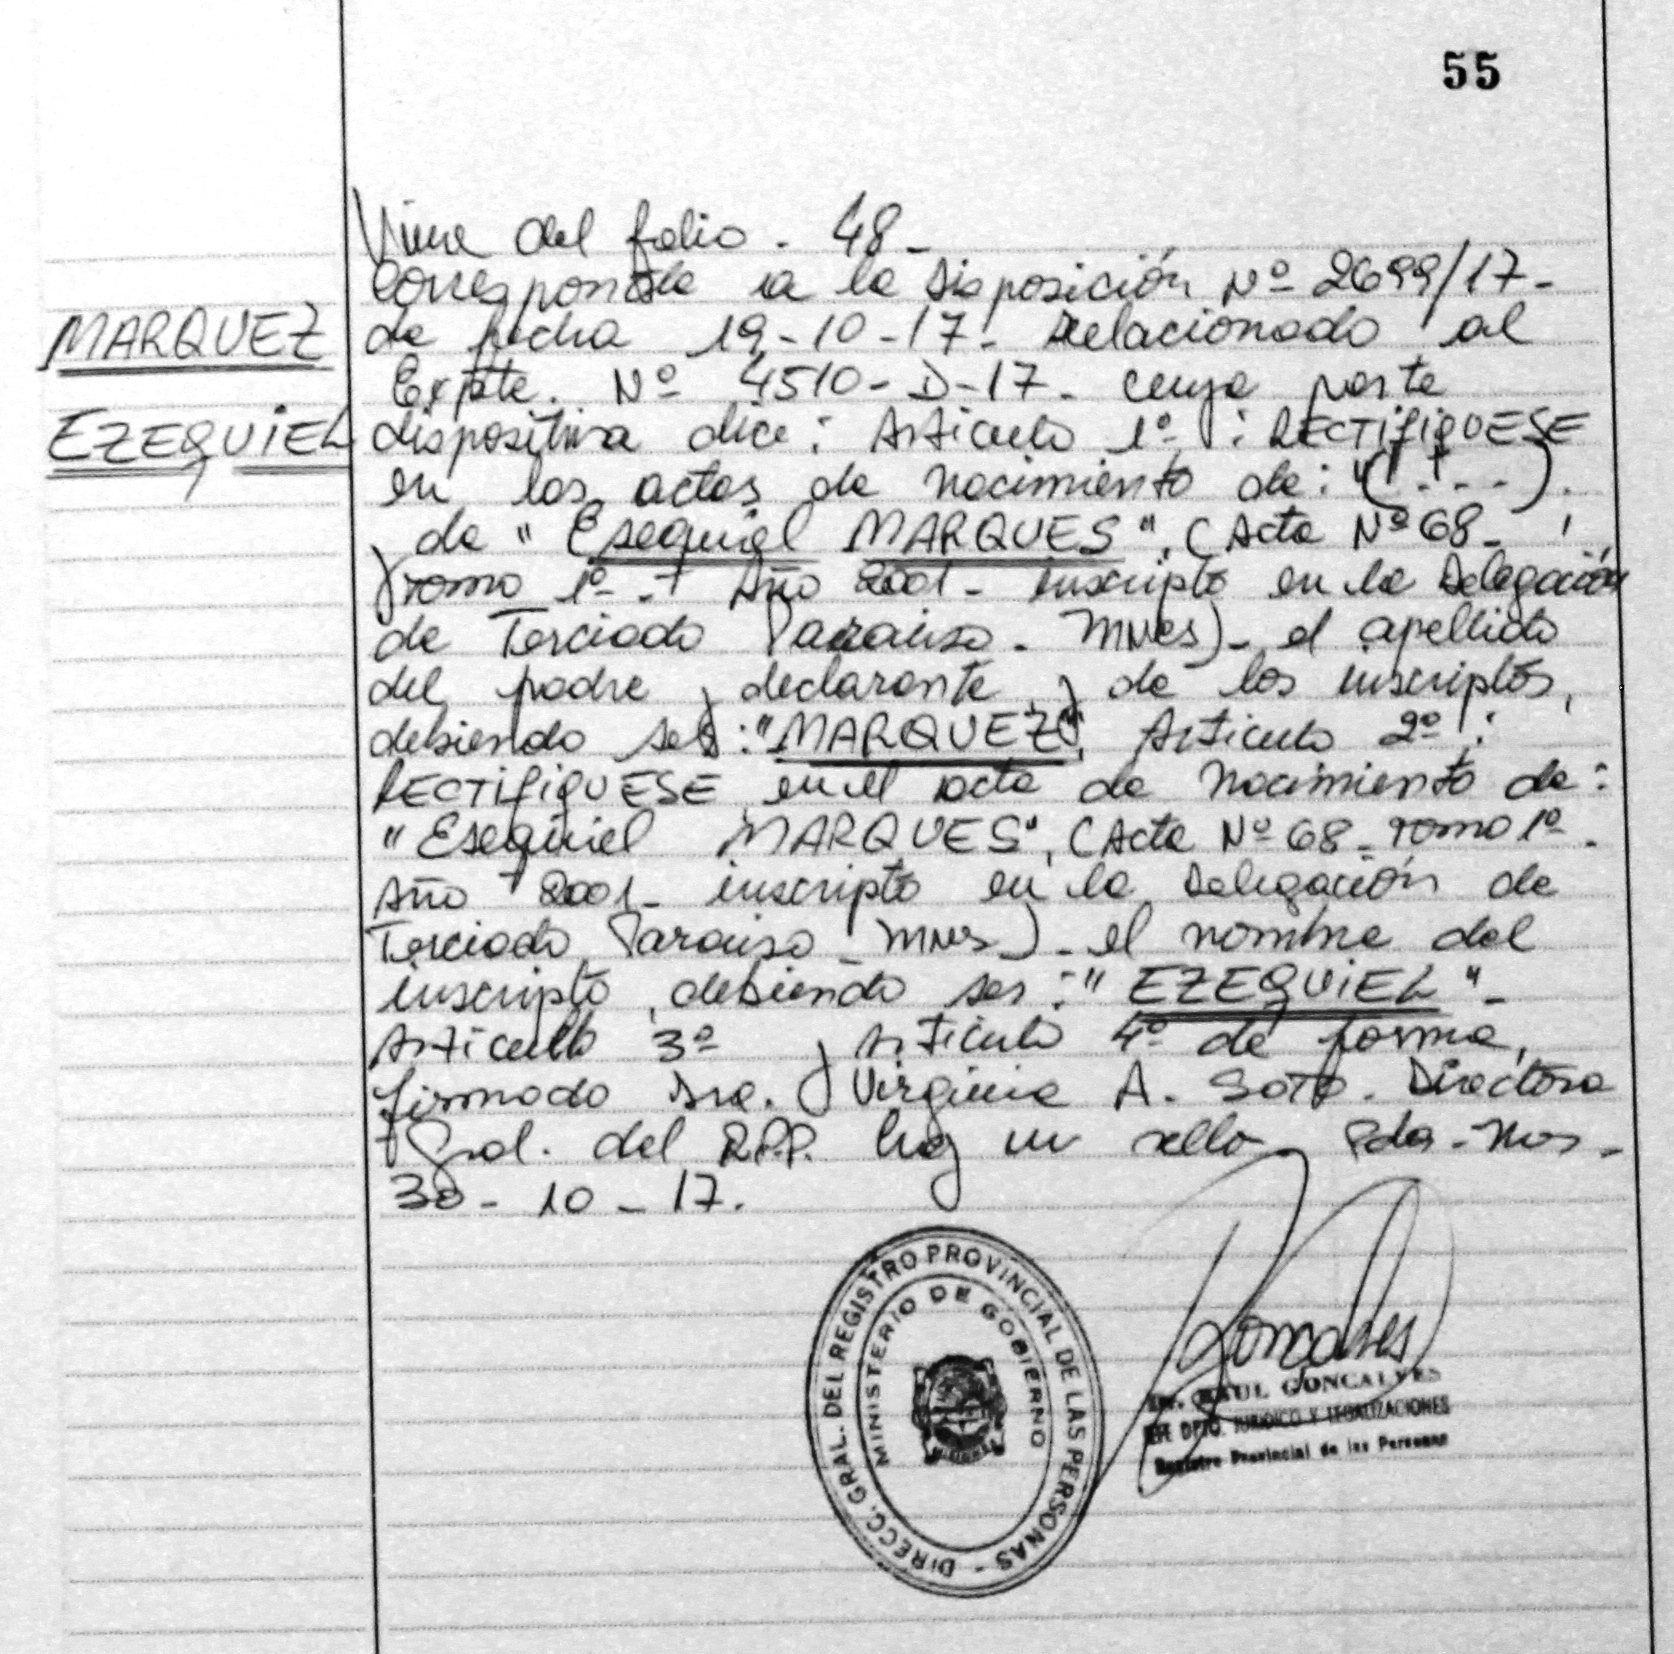 55
Viene del folio - 48 -
Corresponde a la Disposición Nº 2699/17 -
MARQUEZ
de fecha 19-10-17. Relacionado al
Expte. Nº 4510-D-17- cuya parte
EZEQUIEL
dispositiva dice: Articulo 1º: RECTIFIQUESE
en las actas de nacimiento de: "(...).
y de "Esequiel MARQUES", (Acta Nº 68 -
Tomo 1º - Año 2001 - inscripto en la Delegación
de Terciado Paraiso - Mnes) - el apellido
del padre, declarante y de los inscriptos,
debiendo ser: "MARQUEZ". Articulo 2º:
RECTIFIQUESE en el acta de nacimiento de:
"Esequiel MARQUES", (Acta Nº 68 - Tomo 1º -
Año 2001 - inscripto en la Delegación de
Terciado Paraiso - Mnes) - el nombre del
inscripto, debiendo ser: "EZEQUIEL" -
Articulo 3º y Articulo 4º de forma,
firmado Dra. Virginia A. SOTO. Directora
Gral. del R.P.P. hay un sello Pdas - Mnes -
30 - 10 - 17.
DIRECC. GRAL. DEL REGISTRO PROVINCIAL DE LAS PERSONAS -
MINISTERIO DE GOBIERNO
MISIONES
RAUL GONCALVES
DPTO. JURIDICO Y LEGALIZACIONES
Registro Provincial de las Personas